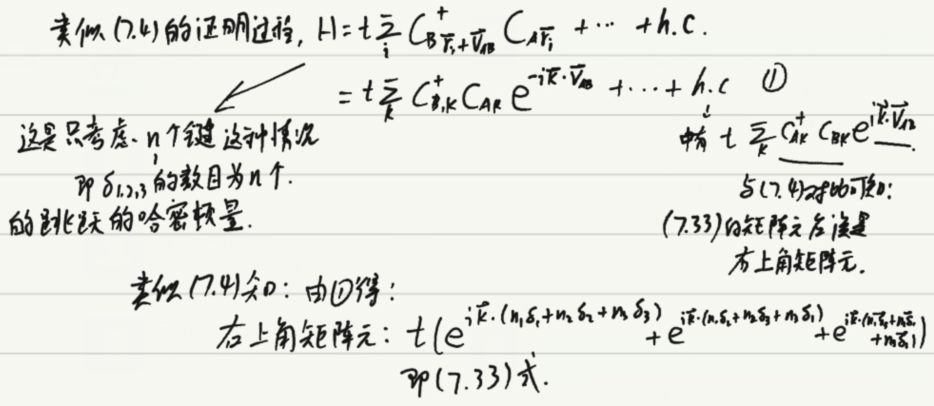 类似(7.4)的证明过程, H=t∑_i C^+_{B r̄_i+V̄_{AB}} C_{A r̄_i} + ⋯ + h.c.
= t∑_k C^+_{B,K} C_{AK} e^{-ik̄·V̄_{AB}} + ⋯ + h.c ①
这是只考虑 n个键 这种情况
即 δ_{1,2,3} 的数目为n个.
的跳跃的哈密顿量.
中有 t ∑_k C^+_{AK} C_{BK} e^{ik̄·V̄_{AB}}.
与(7.4)对比可知:
(7.33)的矩阵元应该是
右上角矩阵元.
类似(7.4)知: 由①得:
右上角矩阵元: t(e^{ik̄·(n_1δ_1+n_2δ_2+n_3δ_3)} + e^{ik̄·(n_1δ_2+n_2δ_3+n_3δ_1)} + e^{ik̄·(
即(7.33)式.